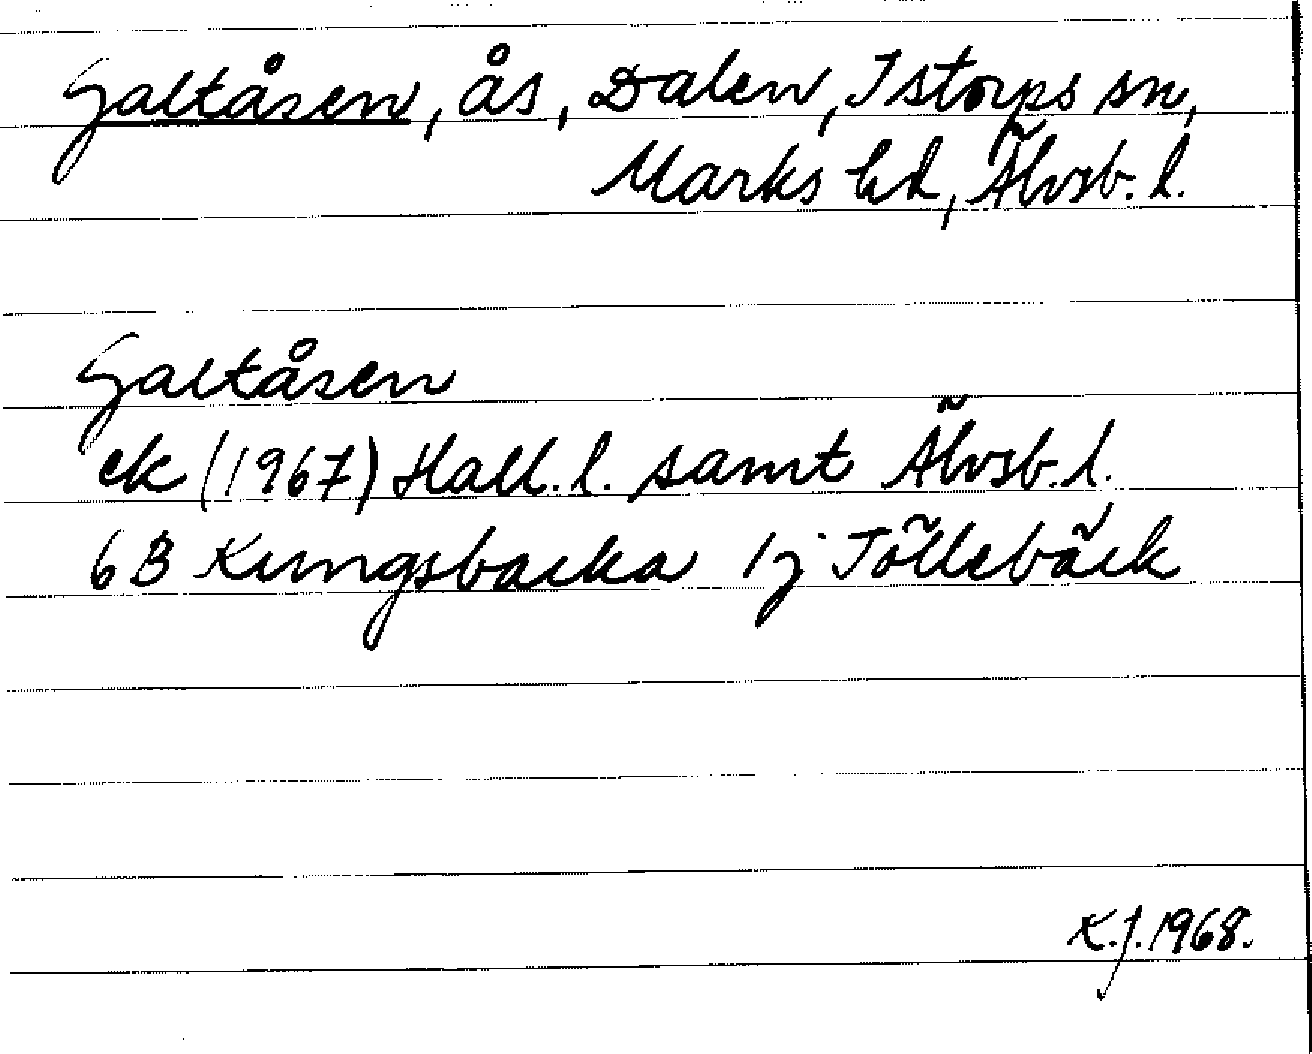 Galtåsen, ås, Dalen, Istorps sn,
Marks hd, Älvsb. l.
Galtåsen
ek (1967) Hall. l. samt Älvsb. l.
6B Kungsbacka 1j Töllebäck
K.J. 1968.